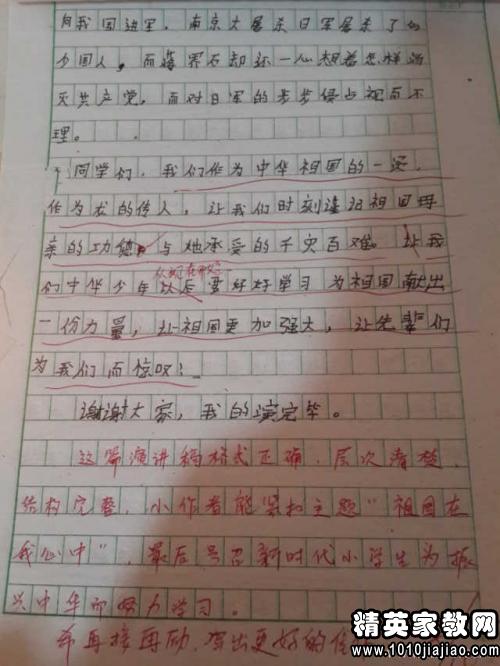 向我国进军，南京大屠杀日军屠杀了
少国人，而蒋界石却还一心想着怎样消
灭共产党，而对日军的步步侵占视而不
理。
同学们，我们作为中华祖国的一
作为龙的传人，让我们时刻谨记祖国母
亲的功 与她承受的千灾百难。让我
从现在开始
们中华少年以后要好好学习 为祖国献出
一份力量，让祖国更加强大，让先辈们
为我们而惊叹！
谢谢大家，我的演完毕。
这篇演讲稿格式正确，层次清楚，
结构完整，小作者能紧扣主题“祖国在
我心中”，最后号召新时代小学生为振
兴中华而努力学习。
希再接再励，写出更好的佳
精英家教网
www.1010jiajiao.com